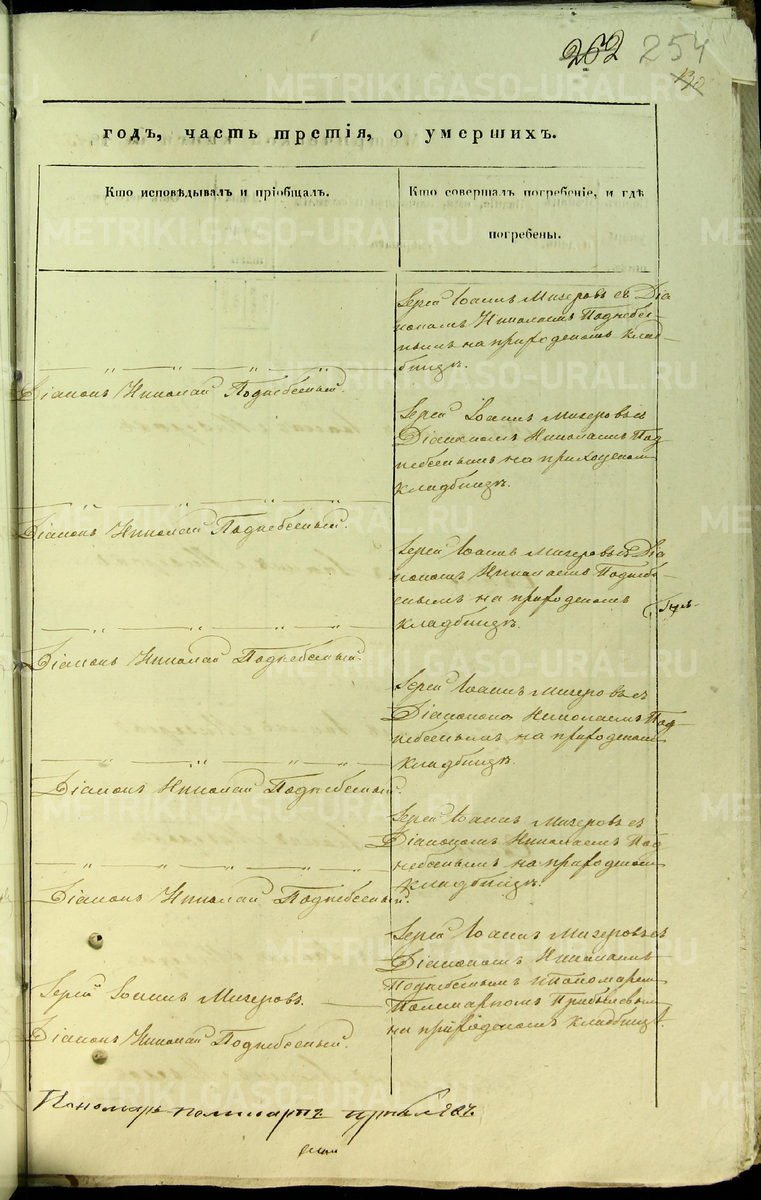 262 254
132
годъ, часть третія, о умершихъ.
Кто исповѣдывалъ и пріобщалъ.
Кто совершалъ погребеніе, и гдѣ
погребены.
Іерей Іоаннъ Мизеровъ съ Діа-
кономъ Николаемъ Поднебес-
нымъ на приходскомъ клад-
бищѣ.
Діаконъ Николай Поднебесный.
Іерей Іоаннъ Мизеровъ съ
Діакономъ Николаемъ Под-
небеснымъ на приходскомъ
кладбищѣ.
Діаконъ Николай Поднебесный.
Іерей Іоаннъ Мизеровъ съ Діа-
кономъ Николаемъ Поднебе-
снымъ на приходскомъ
кладбищѣ.
Діаконъ Николай Поднебесный.
Іерей Іоаннъ Мизеровъ съ
Діакономъ Николаемъ Под-
небеснымъ на приходскомъ
кладбищѣ.
Діаконъ Николай Поднебесный.
Іерей Іоаннъ Мизеровъ съ
Діакономъ Николаемъ Под-
небеснымъ на приходскомъ
кладбищѣ.
Діаконъ Николай Поднебесный.
Іерей Іоаннъ Мизеровъ съ
Діакономъ Николаемъ
Поднебеснымъ и Пономаремъ
Поликарпомъ Прибылевымъ
на приходскомъ кладбищѣ.
Іерей Іоаннъ Мизеровъ.
Діаконъ Николай Поднебесный.
Пономарь Поликарпъ Прибылевъ
METRIKI.GASO-URAL.RU